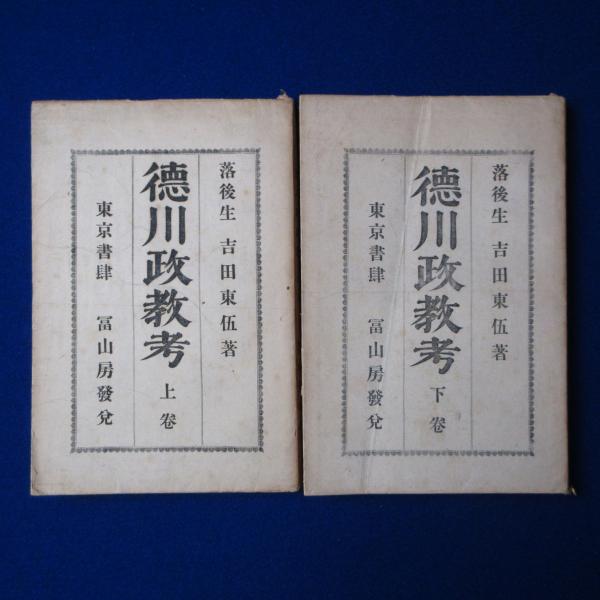 落後生 吉田東伍著
德川政教考 上卷
東京書肆 冨山房發兌
落後生 吉田東伍著
德川政教考 下卷
東京書肆 冨山房發兌